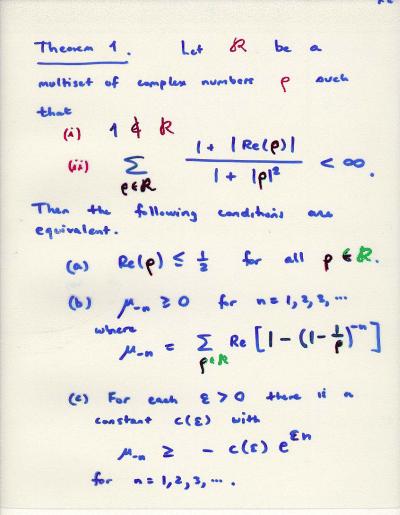 Theorem 1. Let R be a
multiset of complex numbers ρ such
that
(i) 1 ∉ R
(ii) ∑_{ρ∈R} (1 + |Re(ρ)|) / (1 + |ρ|²) < ∞.
Then the following conditions are
equivalent.
(a) Re(ρ) ≤ 1/2 for all ρ ∈ R.
(b) μ_{-n} ≥ 0 for n = 1, 2, 3, ...
where
μ_{-n} = ∑_{ρ∈R} Re [1 - (1 - 1/ρ)^{-n}]
(c) For each ε > 0 there is a
constant c(ε) with
μ_{-n} ≥ - c(ε) e^{εn}
for n = 1, 2, 3, ... .